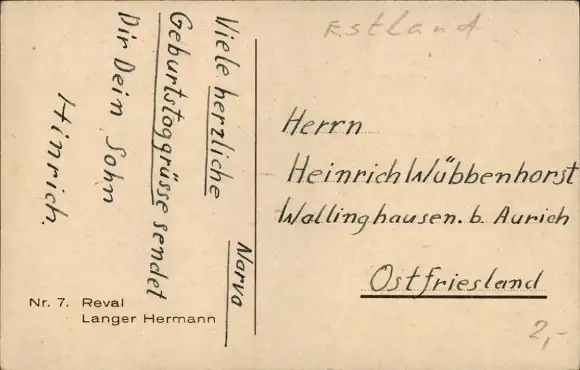 Estland
Narva
Viele herzliche
Geburtstaggrüsse sendet
Dir Dein Sohn
Hinrich.
Nr. 7. Reval
Langer Hermann
Herrn
Heinrich Wübbenhorst
Wallinghausen. b. Aurich
Ostfriesland
2,-